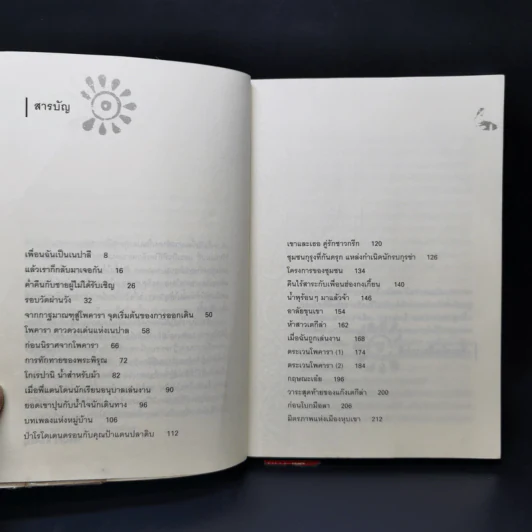 สารบัญ
เพื่อนฉันเป็นเนปาลี 8
แล้วเราก็กลับมาเจอกัน 16
ค่ำคืนกับชายผู้ไม่ได้รับเชิญ 26
รอบวัดผ่านวัง 32
จากกาฐมาณฑุสู่โพคารา จุดเริ่มต้นของการออกเดิน 50
โพคารา ดาวดวงเด่นแห่งเนปาล 58
ก่อนนิราศจากโพคารา 66
การทักทายของพระพิรุณ 72
โกเรปานี น้ำสำหรับม้า 82
เมื่อพี่แดนโดนนักเรียนอนุบาลเล่นงาน 90
ยอดเขาปุนกับน้ำใจนักเดินทาง 96
บทเพลงแห่งหมู่บ้าน 106
ป่าโรโดเดนดรอนกับคุณป้าแดนปลาดิบ 112
เขาและเธอ คู่รักชาวกรีก 120
ชุมชนกุรุงที่กันดรุก แหล่งกำเนิดนักรบกุรข่า 126
โครงการของชุมชน 134
คืนไร้สาระกับเพื่อนฮ่องกงเกี้ยน 140
น้ำพุร้อนๆ มาแล้วจ้า 146
อาลัยขุนเขา 154
ห้าสาวเดกีล่า 162
เมื่อฉันถูกเล่นงาน 168
ตระเวนโพคารา (1) 174
ตระเวนโพคารา (2) 184
กฤษณะเอ๋ย 196
วาระสุดท้ายของแก๊งเดกีล่า 200
ก่อนโบกมือลา 206
มิตรภาพแห่งเมืองหุบเขา 212